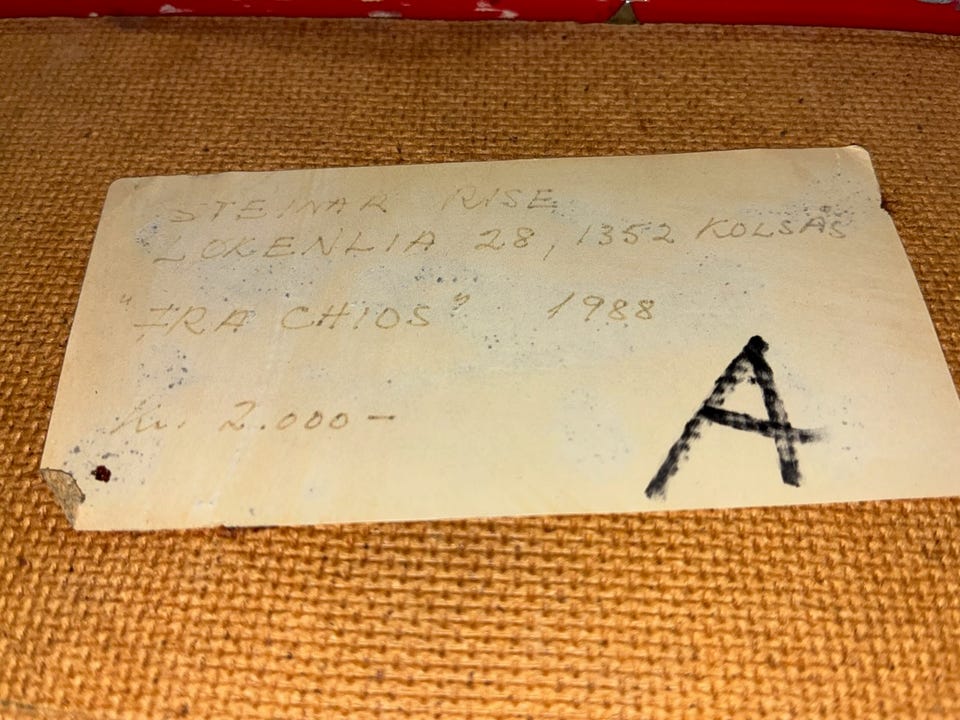 STEINAR RISE
LØKENLIA 28, 1352 KOLSÅS
"FRA CHIOS" 1988
kr. 2.000-
A